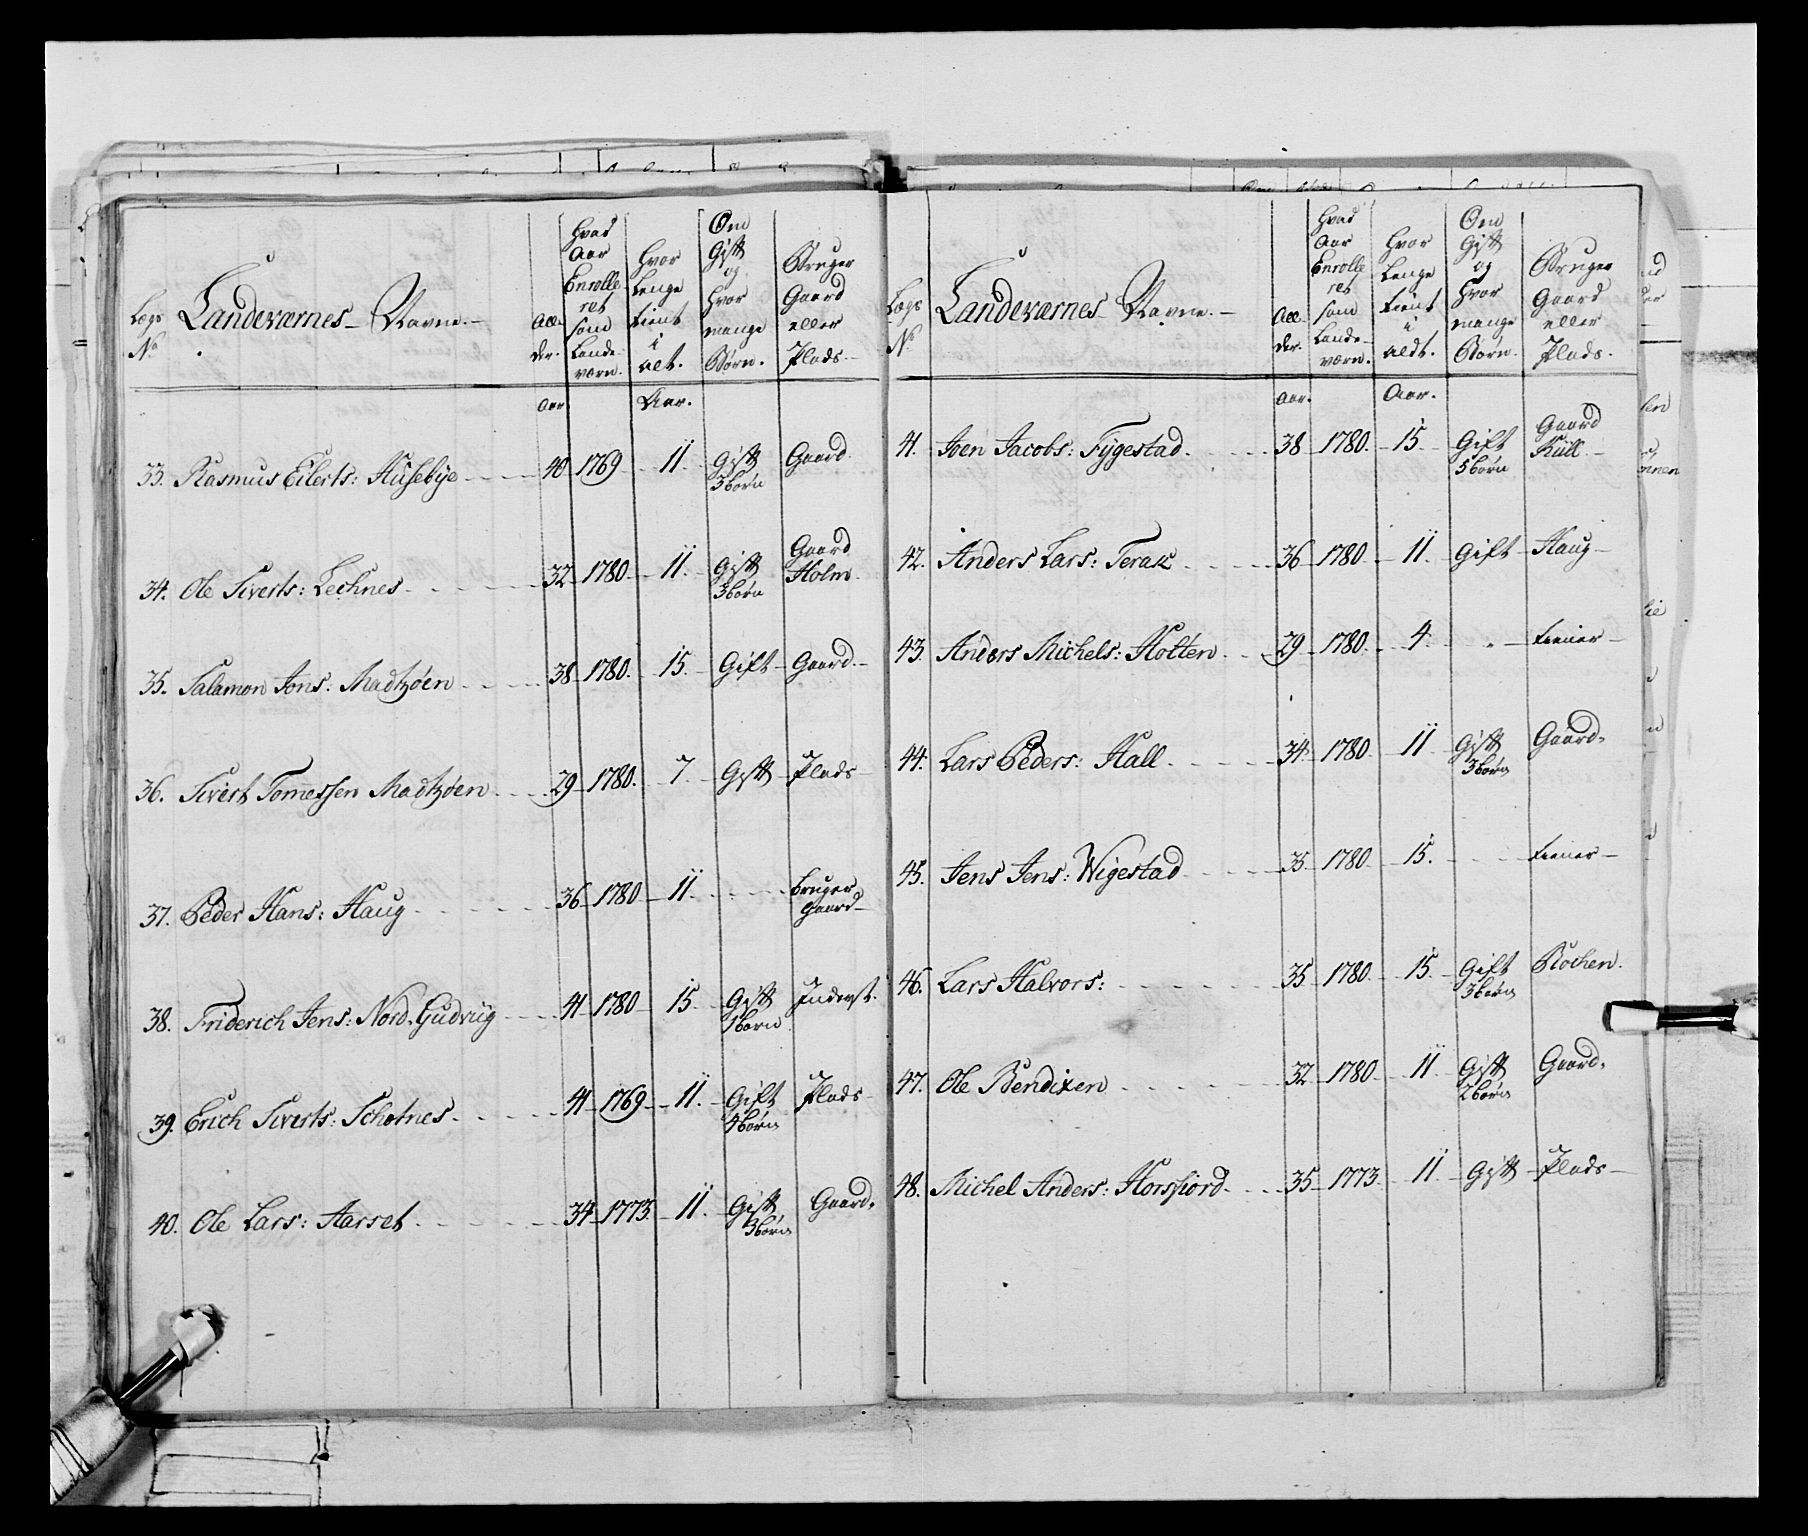 Lægs No Landeværnes Navne. Alder. Hvad Aar Enrolleret som Landeværn. Hvor Lenge tient i alt. Om Gift og hvor mange Børn. Bruger Gaard eller Plads.
Aar. Aar.
33. Rasmus Eilerts: Husebye 40 1769 11 Gift 3 børn Gaard
34. Ole Siverts: Lechnes 32 1780. 11. Gift 3 børn Gaard Holm
35. Salamon Jons: Madtzøen 38 1780. 15. Gift Gaard.
36. Sivert Tomessen Madtzøen 29 1780. 7. Gift Plads
37. Peder Hans: Haug 36 1780 11. bruger Gaard
38. Friderich Jens: Nord. Gudvüg 41 1780 15 Gift 1 børn Inderst.
39. Erich Siverts: Schotnes 41 1769 11. Gift 4 børn Plads
40. Ole Lars: Aarset 34 1773 11. Gift 3 børn Gaard.
Lægs No Landeværnes Navne. Alder. Hvad Aar Enrolleret som Landeværn. Hvor Lenge tient i aldt. Om Gift og hvor mange Børn. Bruger Gaard eller Plads.
Aar. Aar.
41. Joen Jacobs: Tygestad 38 1780. 15 Gift 5 børn Gaard Küll
42. Anders Lars: Terak 36 1780 11. Gift Haug
43. Anders Michels: Holten 29 1780. 4 tiener
44. Lars Peders: Hall 34 1780 11 Gift 3 børn Gaard.
45. Jens Jens: Wigestad 35 1780 15. tiener
46. Lars Halvors: 35 1780 15 Gift 3 børn Kochen.
47. Ole Bendixen 32 1780 11 Gift 2 børn Gaard.
48. Michel Anders: Horsfiord 35 1773 11 Gift Plads